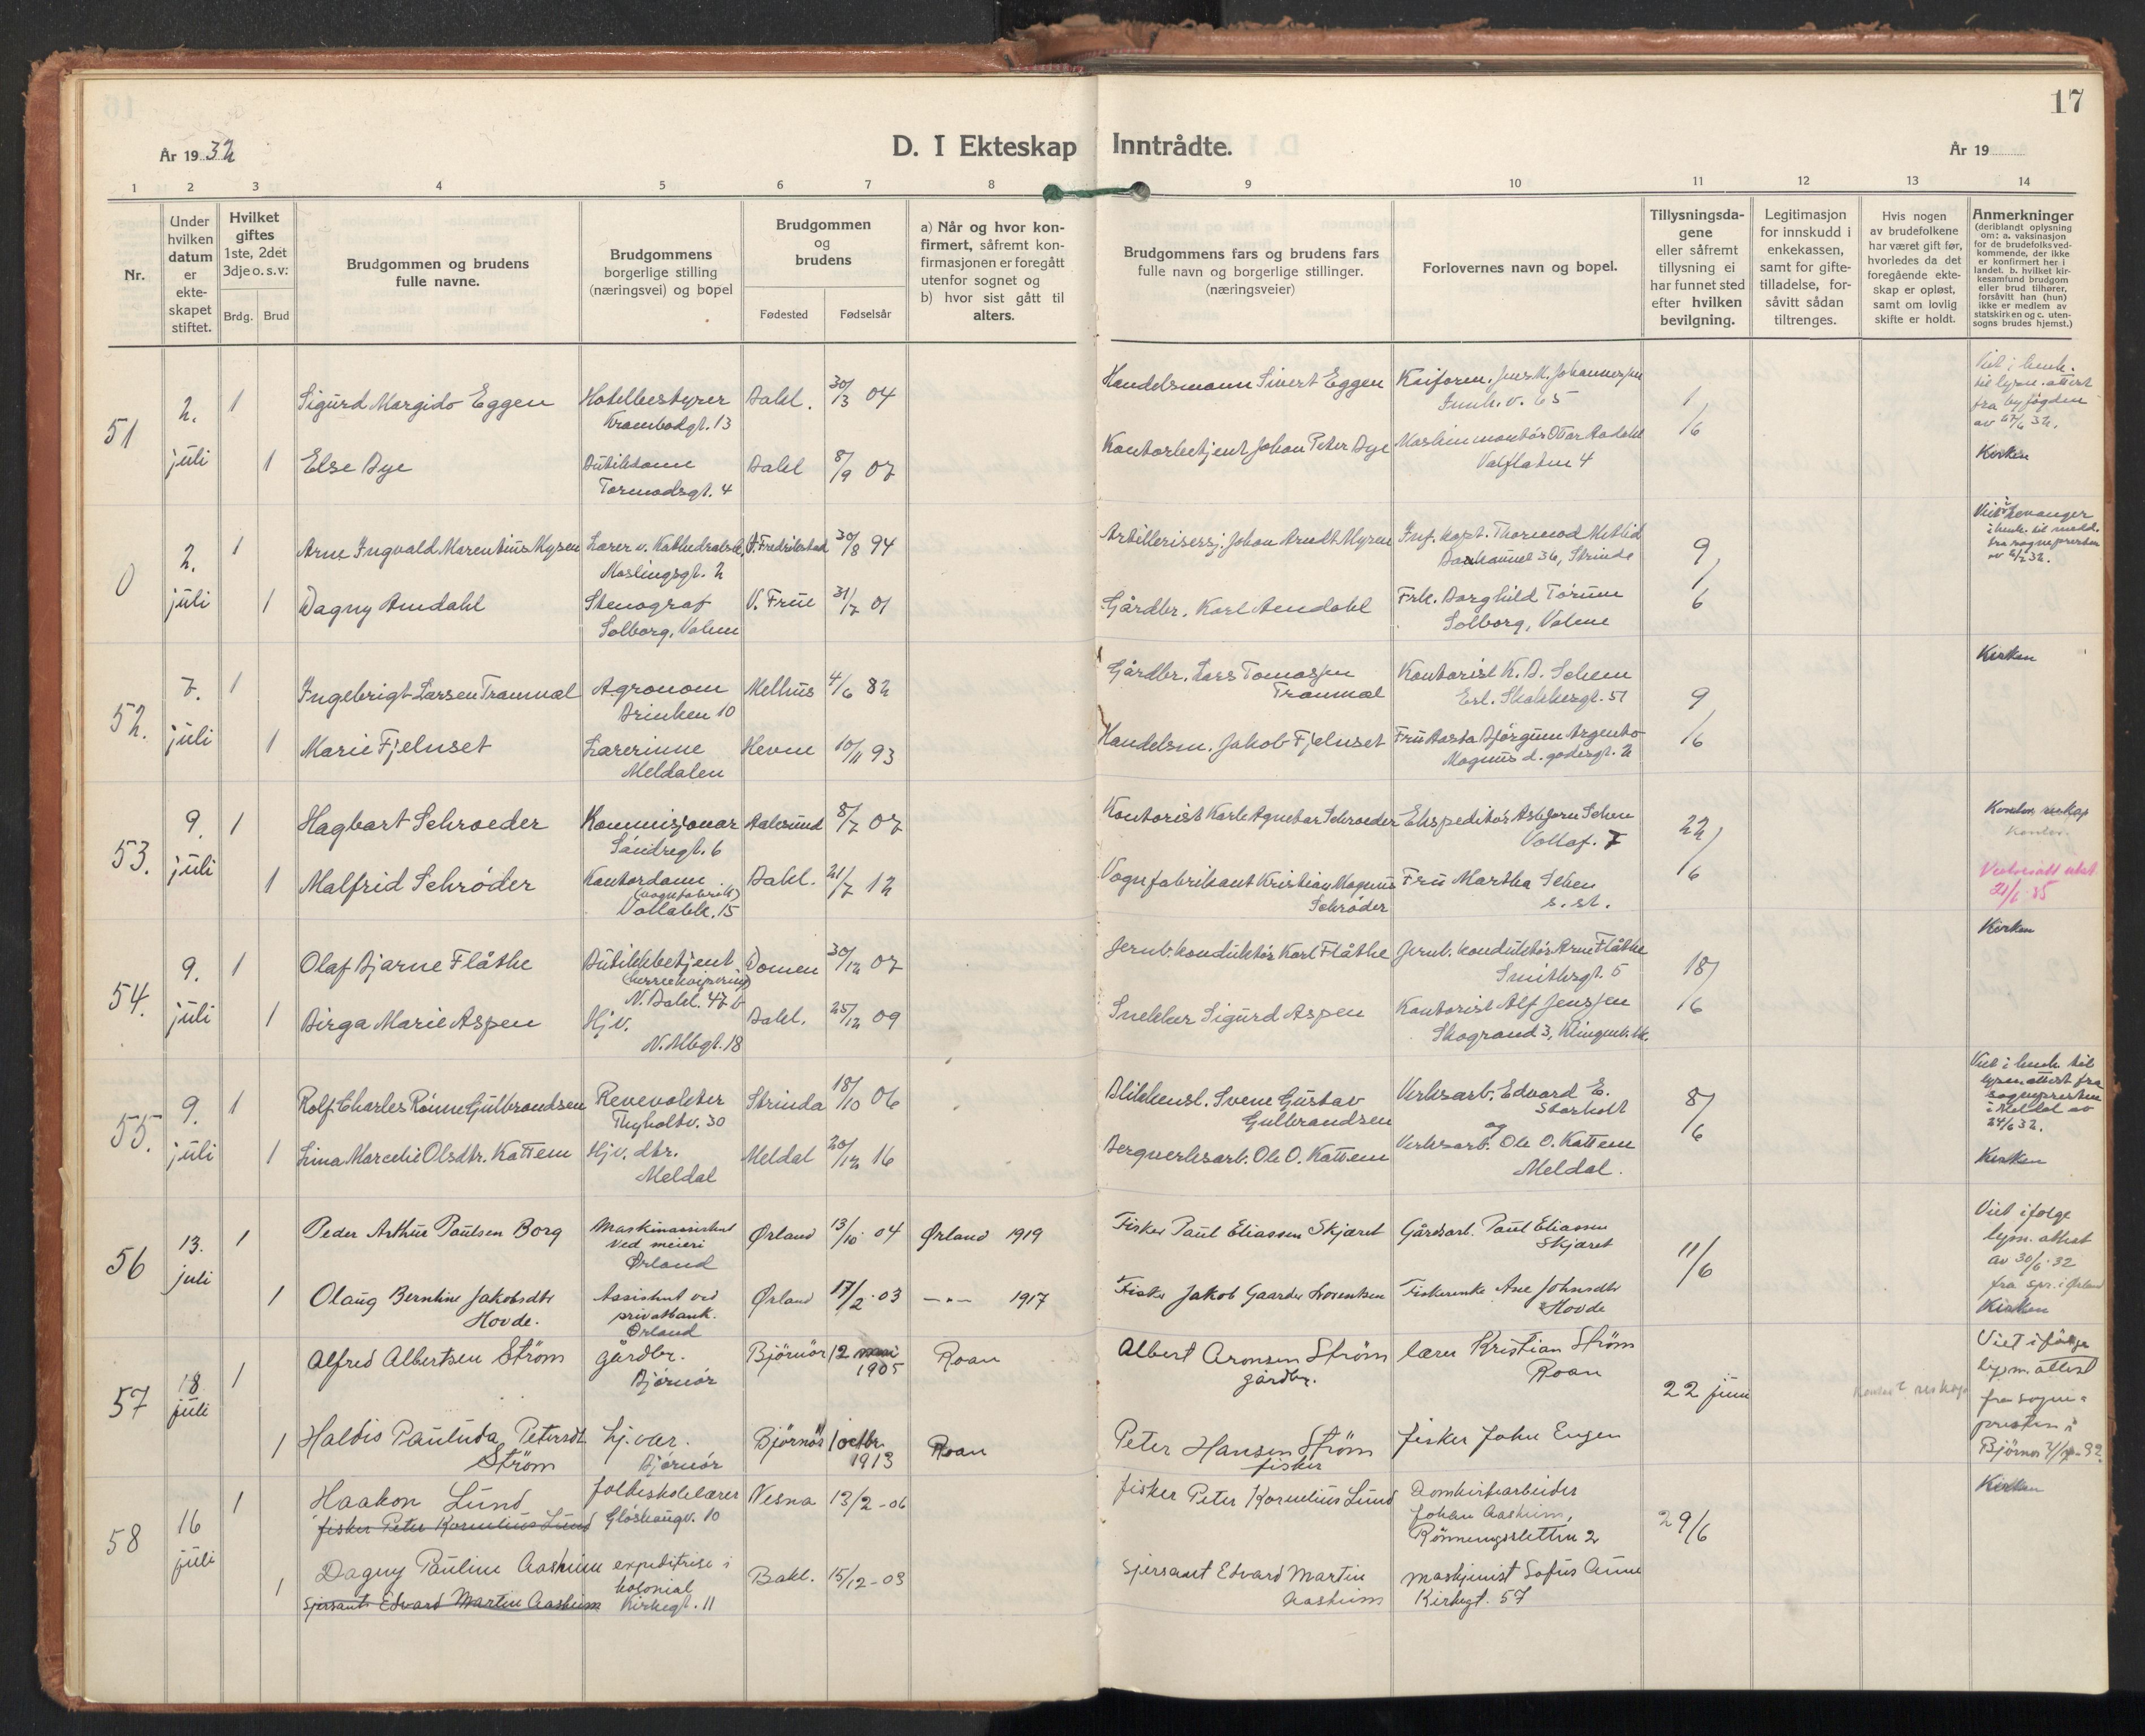 17
År 1932
D. I Ekteskap Inntrådte.
År 19
1 2 3 4 5 6 7 8 9 10 11 12 13 14
Nr.
Under hvilken datum er ekteskapet stiftet.
Hvilket giftes 1ste, 2det 3dje o. s. v:
Brdg. Brud
Brudgommen og brudens fulle navne.
Brudgommens borgerlige stilling (næringsvei) og bopel
Brudgommen og brudens
Fødested Fødselsår
a) Når og hvor konfirmert, såfremt konfirmasjonen er foregått utenfor sognet og
b) hvor sist gått til alters.
Brudgommens fars og brudens fars fulle navn og borgerlige stillinger. (næringsveier)
Forlovernes navn og bopel.
Tillysningsdagene eller såfremt tillysning ei har funnet sted efter hvilken bevilgning.
Legitimasjon for innskudd i enkekassen, samt for giftetilladelse, forsåvitt sådan tiltrenges.
Hvis nogen av brudefolkene har været gift før, hvorledes da det foregående ekteskap er opløst, samt om lovlig skifte er holdt.
Anmerkninger (deriblandt oplysning om: a. vaksinasjon for de brudefolks vedkommende, der ikke er konfirmert her i landet. b. hvilket kirkesamfund brudgom eller brud tilhører, forsåvitt han (hun) ikke er medlem av statskirken og c. utensogns brudes hjemst.)
51
2. juli
1 Sigurd Margido Eggen
Hotellbestyrer
Krambodgt. 13
Bakl. 30/3 04
Handelsmann Sivert Eggen
Innh. v. 65
1/6
1 Else Bye
Butikdame
Tormodsgt. 4
Bakl 8/9 07
Kontorbetjent Johan Peter Bye
Valflaten 4
fra byfogden
Kirken
0
2. juli
1 Arne Ingvald Marentius Mysen
Lærer v. Katedralsk.
Moslingsgt. 2
Fredrikstad 30/8 94
Inf. kapt. Thormod
Strinde
9/6
1 Dagny Amdahl
Stenograf
Solborg, Valene
V. Frue 31/7 01
Gårdbr. Karl Amdahl
Frk. Borghild Torum
Solborg, Valene
52.
7. juli
1 Ingebrigt Larsen Tranmæl
Agronom
Brinken 10
Melhus 4/6 82
Gårdbr. Lars Tomassen
Tranmæl
Kontorist K. D. Solem
Erl. Skakkesgt. 51
9/6
Kirken
1 Marie Fjelnset
Lærerinne
Meldalen
Hevne 10/11 93
Handelsm. Jakob Fjelnset
Magnus d. godesgt. 2
53.
9. juli
1 Hagbart Schroeder
Kommisjonær
Sandregt. 6
Aalesund 8/7 07
Ekspeditør Asbjørn Sehm
Vollaf. 7
22/6
1 Malfrid Schrøder
Kontordame
(vognfabrik)
Vollabk. 15
Bakl. 21/7 12
Vognfabrikant Kristian Magnus
Schrøder
Fru Martha Sehm
s. st.
54.
9. juli
1 Olaf Bjarne Flåthe
Butikkbetjent
N. Bakl. 47 b
Domen 30/12 07
Jernb. konduktør Karl Flåthe
Jernb. konduktør Arne Flåthe
Smithsgt. 5
18/6
Kirken
1 Birga Marie Aspen
Hjv.
N. Allegt. 18
Bakl. 25/12 09
Snekker Sigurd Aspen
Kontorist Alf Jenssen
Skogrand 3,
55.
9. juli
1 Rolf Charles Rønne Gulbrandsen
Revevokter
Tyholtv. 30
Strinda 18/10 06
Blikkensl. Svene Gustav
Gulbrandsen
Verksarb. Edvard E.
Storholt
8/6
1 Lina Marcelie Olsdtr. Kattem
Hjv. dtr.
Meldal
Meldal 20/12 16
Bergverksarb. Ole O. Kattem
og
Verksarb. Ole O. Kattem
Meldal.
Viet i henh. til
lysn.attest fra
sognepresten
i Meldal av
24/6 32.
Kirken
56
13. juli
1 Peder Arthur Paulsen Borg
Maskinassistent
ved meieri
Ørland
Ørland 13/10 04
Ørland 1919
Fisker Paul Eliassen Skjæret
Gårdsarb. Paul Eliassen
Skjæret
11/6
1 Olaug Berntine Jakobsdtr
Hovde.
Assistent ved
privatbank.
Ørland
Ørland 17/2 03
—"— 1917
Fisker Jakob Gaarder Lorentsen
Fiskerenke Ane Johnsdtr
Hovde
Viet ifølge
lysn. attest
av 30/6 32
fra spr. i Ørland
Kirken
57
18 juli
1 Alfred Albertsen Strøm
gårdbr.
Bjørnør
Bjørnør 12 mai
1905
Roan
Albert Aronsen Strøm
gårdbr.
lærer Kristian Strøm
Roan
22 juni
1 Haldis Pauluda Petersdt.
Strøm
hj. vær.
Bjørnør
Bjørnør 1 octbr.
1913
Roan
Peter Hansen Strøm
fisker
fisker John Eugen
Viet ifølge
lysn. attest
fra sogne-
presten i
Bjørnør
58
16 juli
1 Haakon Lund
fisker Peter Kornelius Lund
folkeskolelærer
Gløshaugv. 10
Nesna 13/2 - 06
fisker Peter Kornelius Lund
Domkirkearbeider
Johan Aasheim,
Rønningsletten 2
29/6
Kirken
1 Dagny Pauline Aasheim
Sjersant Edvard Martin Aasheim
expeditrise i
kolonial
Kirkegt. 11
Bakl. 15/12 - 03
Sjersant Edvard Martin
Aasheim
maskinist Sofus Aune
Kirkegt. 57